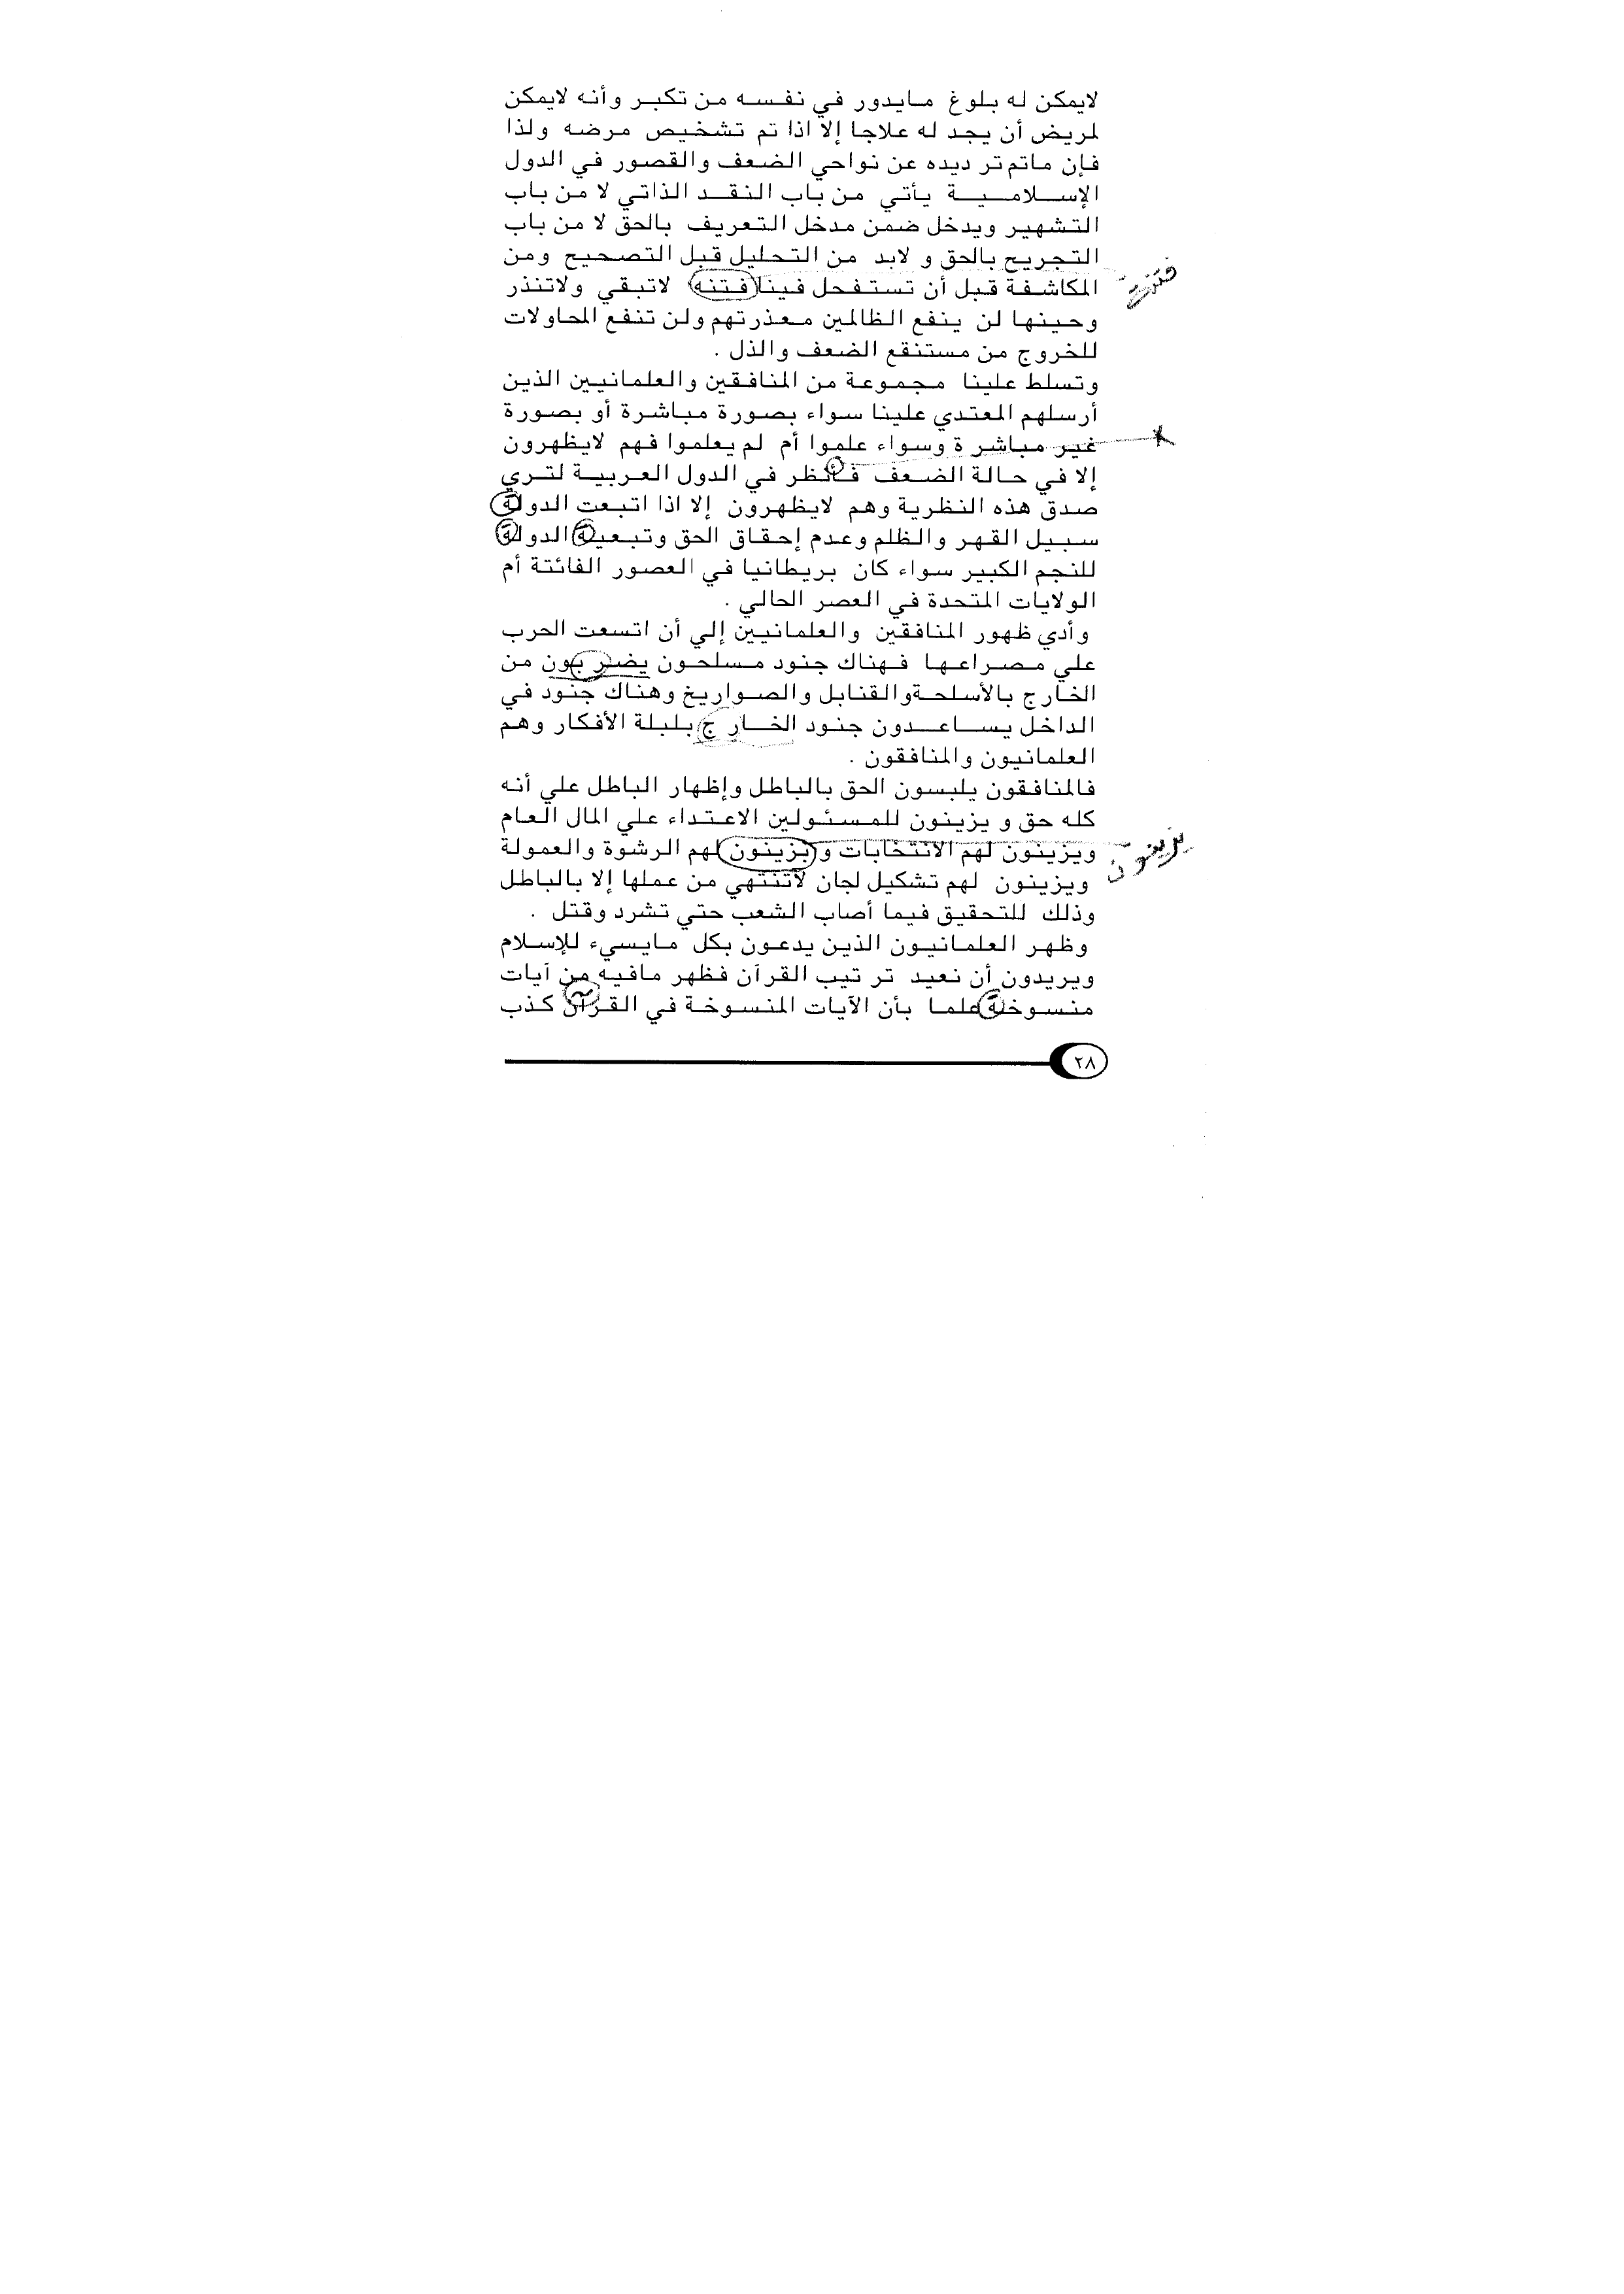 لايمكن له بلوغ مايدور في نفسه من تكبر وأنه لايمكن
لمريض أن يجد له علاجا إلا اذا تم تشخيص مرضه ولذا
فإن ماتم تر ديده عن نواحي الضعف والقصور في الدول
الإسلامية يأتي من باب النقد الذاتي لا من باب
التشهير ويدخل ضمن مدخل التعريف بالحق لا من باب
التجريح بالحق و لابد من التحليل قبل التصحيح ومن
المكاشفة قبل أن تستفحل فينا فتنه لاتبقي ولاتنذر
وحينها لن ينفع الظالمين معذرتهم ولن تنفع المحاولات
للخروج من مستنقع الضعف والذل .
وتسلط علينا مجموعة من المنافقين والعلمانيين الذين
أرسلهم المعتدي علينا سواء بصورة مباشرة أو بصورة
غير مباشر ة وسواء علموا أم لم يعلموا فهم لايظهرون
إلا في حالة الضعف فانظر في الدول العربية لتري
صدق هذه النظرية وهم لايظهرون إلا اذا اتبعت الدولة
سبيل القهر والظلم وعدم إحقاق الحق وتبعية الدولة
للنجم الكبير سواء كان بريطانيا في العصور الفائتة أم
الولايات المتحدة في العصر الحالي .
وأدي ظهور المنافقين والعلمانيين إلي أن اتسعت الحرب
علي مصراعها فهناك جنود مسلحون يضر بون من
الخارج بالأسلحةوالقنابل والصواريخ وهناك جنود في
الداخل يساعدون جنود الخار ج بلبلة الأفكار وهم
العلمانيون والمنافقون .
فالمنافقون يلبسون الحق بالباطل وإظهار الباطل علي أنه
كله حق و يزينون للمسئولين الاعتداء علي المال العام
ويزينون لهم الانتخابات ويزينون لهم الرشوة والعمولة
ويزينون لهم تشكيل لجان لاتنتهي من عملها إلا بالباطل
وذلك للتحقيق فيما أصاب الشعب حتي تشرد وقتل .
وظهر العلمانيون الذين يدعون بكل مايسيء للإسلام
ويريدون أن نعيد تر تيب القرآن فظهر مافيه من آيات
منسوخة علما بأن الآيات المنسوخة في القرآن كذب
٢٨
فتنة
يزينون